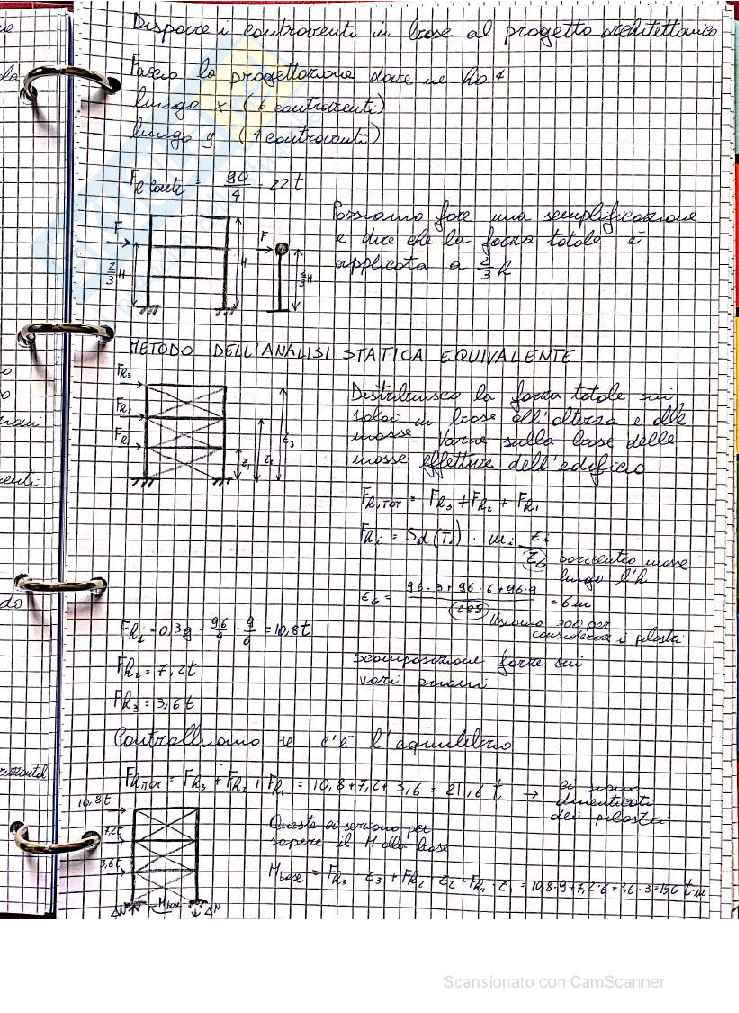 Disporre i controventi in base al progetto architettonico
Faccio la progettazione dove ne ho 4
lungo x (6 controventi)
lungo y (4 controventi)
= 90/4 = 22 t
Possiamo fare una semplificazione
e dire che la forza totale è
applicata a 2/3 h
F
2/3 H
H
F
2/3 H
METODO DELL'ANALISI STATICA EQUIVALENTE
FR3
FR2
FR1
z1
z2
z3
Distribuisco la forza totale sui
solai in base all'altezza e alle
masse. Varia sulla base delle
masse effettive dell'edificio
FR,TOT = FR3 + FR2 + FR1
FRi = Sd(T1) · mi zi/zG
baricentro masse
lungo l'h
zG = 96·3+96·6+96·9 = 6 m
considerare i pilastri
= 0,3g · 96/4 · 9/6 = 10,8 t
FR2 = 7,2 t
FR3 = 3,6 t
scomposizione forze sui
vari piani
Controlliamo se c'è l'equilibrio
FR,TOT = FR3 + FR2 + FR1 = 10,8+7,2+3,6 = 21,6 t →
dimenticati
dei pilastri
10,8 t
7,2t
3,6t
Queste ci servono per
sapere il M alla base
Mbase = FR3 · z3 + FR2 · z2 + FR1 · z1 = 10,8·9+7,2·6+3,6·3=
ΔN
Mbase
ΔN
Scansionato con CamScanner